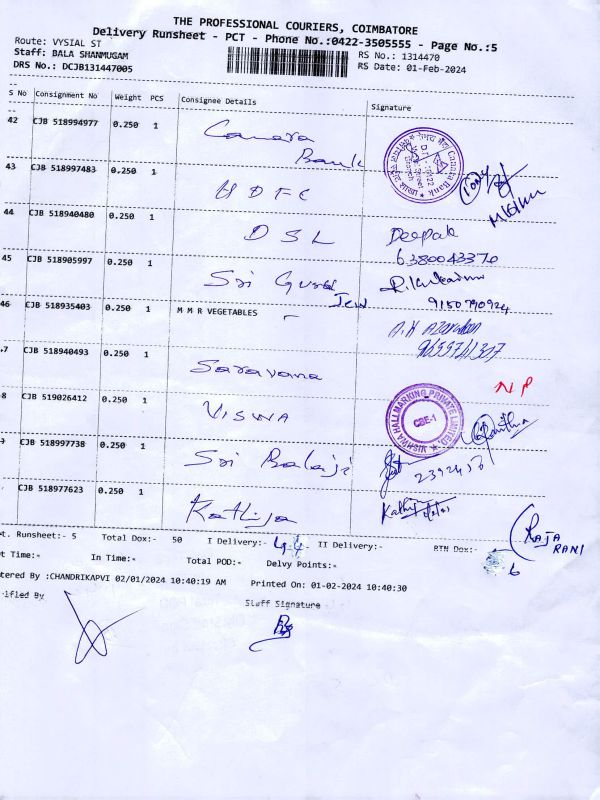 THE PROFESSIONAL COURIERS, COIMBATORE
Delivery Runsheet - PCT - Phone No.:0422-3505555 - Page No.:5
Route: VYSIAL ST
RS No.: 1314470
Staff: BALA SHANMUGAM
RS Date: 01-Feb-2024
DRS No.: DCJB131447005
S No Consignment No Weight PCS Consignee Details Signature
42 CJB 518994977 0.250 1 Canara
Bank
Canara Bank
43 CJB 518997483 0.250 1 HDFC
44 CJB 518940480 0.250 1 DSL Deepak
6380043370
45 CJB 518905997 0.250 1 Sri Guru
Jew
9150790924
46 CJB 518935403 0.250 1 M M R VEGETABLES
9655741307
7 CJB 518940493 0.250 1 Saravana NP
8 CJB 519026412 0.250 1 VISWA
VISHWA HALLMARKING PRIVATE LIMITED
CBE-1
CJB 518997738 0.250 1 Sri Balaji
CJB 518977623 0.250 1 Kathija
t. Runsheet:- 5 Total Dox:- 50 I Delivery:- 44 II Delivery:- RTN Dox:- 6
RAJA
RANI
t Time:- In Time:- Total POD:- Delvy Points:-
tered By :CHANDRIKAPVI 02/01/2024 10:40:19 AM Printed On: 01-02-2024 10:40:30
ified By
Staff Signature